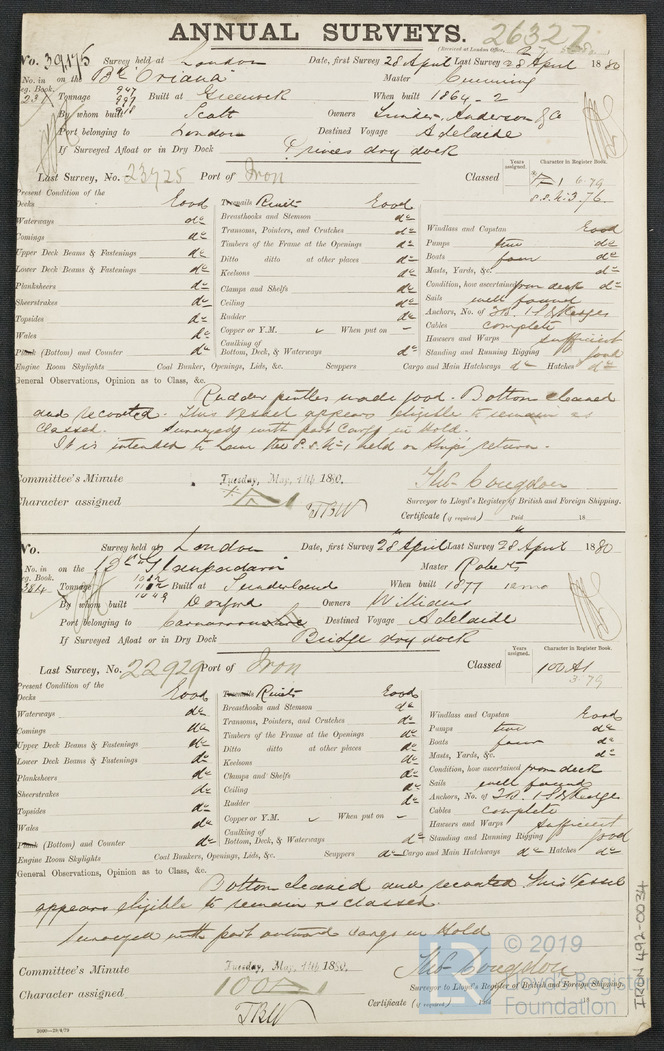 ANNUAL SURVEYS. 26327
(Received at London Office,
No. 39176 Survey held at London Date, first Survey 28 April Last Survey 28 April 1880
No. in on the Bk Oriana Master Cumming
Reg. Book.
Tonnage 947 Built at Greenock When built 1864 - 2
By whom built Scott Owners Anderson & Co
Port belonging to London Destined Voyage Adelaide
If Surveyed Afloat or in Dry Dock dry dock
Last Survey, No. 23725 Port of Iron Classed
Years assigned. Character in Register Book.
A 1 6.79
S.S. 3.76
Present Condition of the
Decks Good
Waterways do
Comings do
Upper Deck Beams & Fastenings do
Lower Deck Beams & Fastenings do
Planksheers do
Sheerstrakes do
Topsides do
Wales do
Pitch (Bottom) and Counter do
Engine Room Skylights Coal Bunkers, Openings, Lids, &c. Scuppers Cargo and Main Hatchways do Hatches do
Treenails Rivets Good
Breasthooks and Stemson do
Transoms, Pointers, and Crutches do
Timbers of the Frame at the Openings do
Ditto ditto at other places do
Keelsons do
Clamps and Shelfs do
Ceiling do
Rudder do
Copper or Y.M. When put on -
Caulking of
Bottom, Deck, & Waterways do
Windlass and Capstan Good
Pumps two do
Boats four do
Masts, Yards, &c. do
Condition, how ascertained from deck do
Sails well found
Anchors, No. of 3B. 1S & Kedges
Cables complete
Hawsers and Warps sufficient
Standing and Running Rigging good
General Observations, Opinion as to Class, &c.
Rudder pintles made good. Bottom cleaned
and recoated. This Vessel appears eligible to remain as
classed. Surveyed with part Cargo in Hold.
It is intended to have the S.S. No 1 held on ship's return.
Committee's Minute Tuesday, May, 4th 1880.
Character assigned A 1
TBW
Thos Congdon
Surveyor to Lloyd's Register of British and Foreign Shipping.
Certificate (if required) Paid 18
No. Survey held at London Date, first Survey 28 April Last Survey 28 April 1880
No. in on the Bk Glanpadarn Master Roberts
Reg. Book.
Tonnage Built at Sunderland When built 1877
By whom built Doxford Owners Williams
Port belonging to Carnarvon Destined Voyage Adelaide
If Surveyed Afloat or in Dry Dock Bridge dry dock
Last Survey, No. 22929 Port of Iron Classed
Years assigned. Character in Register Book.
100 A1
3.79
Present Condition of the
Decks Good
Waterways do
Comings do
Upper Deck Beams & Fastenings do
Lower Deck Beams & Fastenings do
Planksheers do
Sheerstrakes do
Topsides do
Wales do
Pitch (Bottom) and Counter do
Engine Room Skylights Coal Bunkers, Openings, Lids, &c. Scuppers do Cargo and Main Hatchways do Hatches do
Treenails Rivets Good
Breasthooks and Stemson do
Transoms, Pointers, and Crutches do
Timbers of the Frame at the Openings do
Ditto ditto at other places do
Keelsons do
Clamps and Shelfs do
Ceiling do
Rudder do
Copper or Y.M. When put on -
Caulking of
Bottom, Deck, & Waterways do
Windlass and Capstan Good
Pumps two do
Boats four do
Masts, Yards, &c. do
Condition, how ascertained from deck
Sails well found
Anchors, No. of 3B. 1S & Kedge
Cables complete
Hawsers and Warps sufficient
Standing and Running Rigging good
General Observations, Opinion as to Class, &c.
Bottom cleaned and recoated This Vessel
appears eligible to remain as classed.
Surveyed with part outward cargo in Hold
Committee's Minute Tuesday, May, 4th 1880.
Character assigned 100 A 1
TBW
Thos Congdon
Surveyor to Lloyd's Register of British and Foreign Shipping.
Certificate (if required) Paid 18
IRON 492-0034
LR © 2019
Lloyd's Register
Foundation